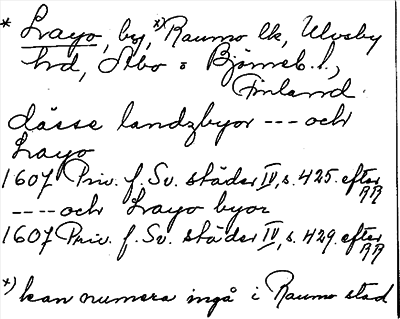 * Lrayo, by, *) Raumo lk, Ulvsby
hrd, Åbo o Björneb. l.,
Finland.
dässe landzbyor --- och
Lrayo
1607 Priv. f. Sv. städer IV, s. 425. efter
RR
---- och Lrayo byor
1607 Priv. f. Sv. städer IV, s. 429. efter
RR
*) kan numera ingå i Raumo stad